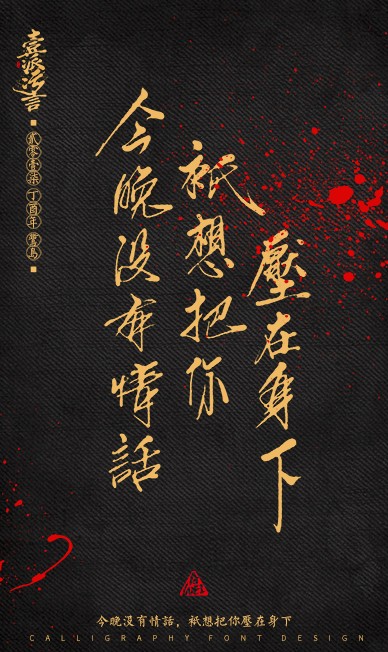 貳零壹柒 丁酉年
今晚没有情話
衹想把你
壓在身下
今晚没有情話，衹想把你壓在身下
CALLIGRAPHY FONT DESIGN